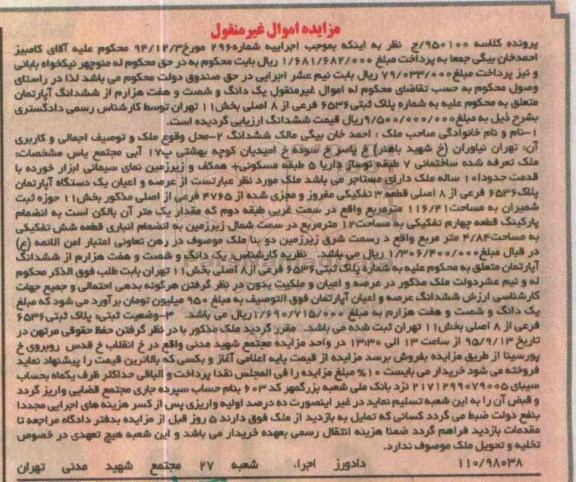 مزایده اموال غیرمنقول
پرونده کلاسه 950100/ج نظر به اینکه بموجب اجراییه شماره 296 مورخ 94/12/3 محکوم علیه آقای کامبیز
احمدخان بیگی جمعا به پرداخت مبلغ 1/681/682/000 ریال بابت محکوم به در حق محکوم له منوچهر نیکخواه بابانی
و نیز پرداخت مبلغ 79/033/000 ریال بابت نیم عشر اجرایی در حق صندوق دولت محکوم می باشد لذا در راستای
وصول محکوم به حسب تقاضای محکوم له اموال غیرمنقول یک دانگ و شصت و هفت هزارم از ششدانگ آپارتمان
متعلق به محکوم علیه به شماره پلاک ثبتی 6536 فرعی از 8 اصلی بخش 11 تهران توسط کارشناس رسمی دادگستری
بشرح ذیل به مبلغ 9/500/000/000 ریال قیمت ششدانگ ارزیابی گردیده است.
1-نام و نام خانوادگی صاحب ملک : احمد خان بیگی مالک ششدانگ 2-محل وقوع ملک و توصیف اجمالی و کاربری
آن، تهران نیاوران (خ شهید باهنر) خ یاسر خ سوده خ امیدیان کوچه بهشتی پ 17 آبی مجتمع یاس مشخصات:
ملک تعرفه شده ساختمانی 7 طبقه نوساز دارا 5 طبقه مسکونی+ همکف و زیرزمین نمای سیمانی ابزار خورده با
قدمت حدودا 10 ساله ملک دارای مستاجر می باشد ملک مورد نظر عبارتست از عرصه و اعیان یک دستگاه آپارتمان
پلاک 6536 فرعی از 8 اصلی قطعه 3 تفکیکی مفروز و مجزی شده از 4765 فرعی از اصلی مذکور بخش 11 حوزه ثبت
شمیران به مساحت 116/41 مترمربع واقع در سمت غربی طبقه دوم که مقدار یک متر آن بالکن است به انضمام
پارکینگ قطعه چهارم تفکیکی به مساحت 12 مترمربع در سمت شمال زیرزمین به انضمام انباری قطعه شش تفکیکی
به مساحت 4/84 متر مربع واقع د رسمت شرق زیرزمین دو بنا ملک موصوف در رهن تعاونی اعتبار امن الائمه (ع)
در قبال مبلغ 1/306/400/000 ریال می باشد. نظریه کارشناس یک دانگ و شصت و هفت هزارم از ششدانگ
آپارتمان متعلق به محکوم علیه به شماره پلاک ثبتی 6536 فرعی از 8 اصلی بخش 11 تهران بابت طلب فوق الذکر محکوم
له و نیم عشردولت ملک مذکور در عرصه و اعیان و ملکیت بدون در نظر گرفتن هرگونه بدهی احتمالی و جمیع جهات
کارشناسی ارزش ششدانگ عرصه و اعیان آپارتمان فوق التوصیف به مبلغ 950 میلیون تومان برآورد می شود که مبلغ
یک دانگ و شصت و هفت هزارم به مبلغ 1/690/715/000ریال می باشد. 3-وضعیت ثبتی، پلاک ثبتی 6536
فرعی از 8 اصلی بخش 11 تهران ثبت شده می باشد. مقرر گردید ملک مذکور با در نظر گرفتن حفظ حقوقی مرتهن در
تاریخ 95/9/13 از ساعت 13 الی 13:30 در واحد مزایده مجتمع شهید مدنی واقع در خ انقلاب خ قدس روبروی خ
پورسینا از طریق مزایده بفروش برسد مزایده از قیمت پایه اعلامی آغاز و بکسی که بالاترین قیمت را پیشنهاد نماید
فروخته می شود خریدار می بایست 10% مبلغ مزایده را فی المجلس نقدا پرداخت و الباقی حداکثر ظرف یکماه بحساب
سیبای 2171299079005 نزد بانک ملی شعبه بزرگمهر کد 603 بنام حساب سپرده جاری مجتمع قضایی واریز گردد
و قبض آن را به این شعبه تسلیم نماید در غیر اینصورت ده درصد اولیه واریزی پس از کسر هزینه های اجرایی مجددا
بنفع دولت ضبط می گردد کسانی که تمایل به بازدید از ملک فوق دارند 5 روز قبل از مزایده بدفتر دادگاه مراجعه تا
مقدمات بازدید فراهم گردد ضمنا هزینه انتقال رسمی بعهده خریدار می باشد و این شعبه هیچ تعهدی در خصوص
تخلیه و تحویل ملک موصوف ندارد.
110/98038 دادورز اجرا، شعبه 27 مجتمع شهید مدنی تهران